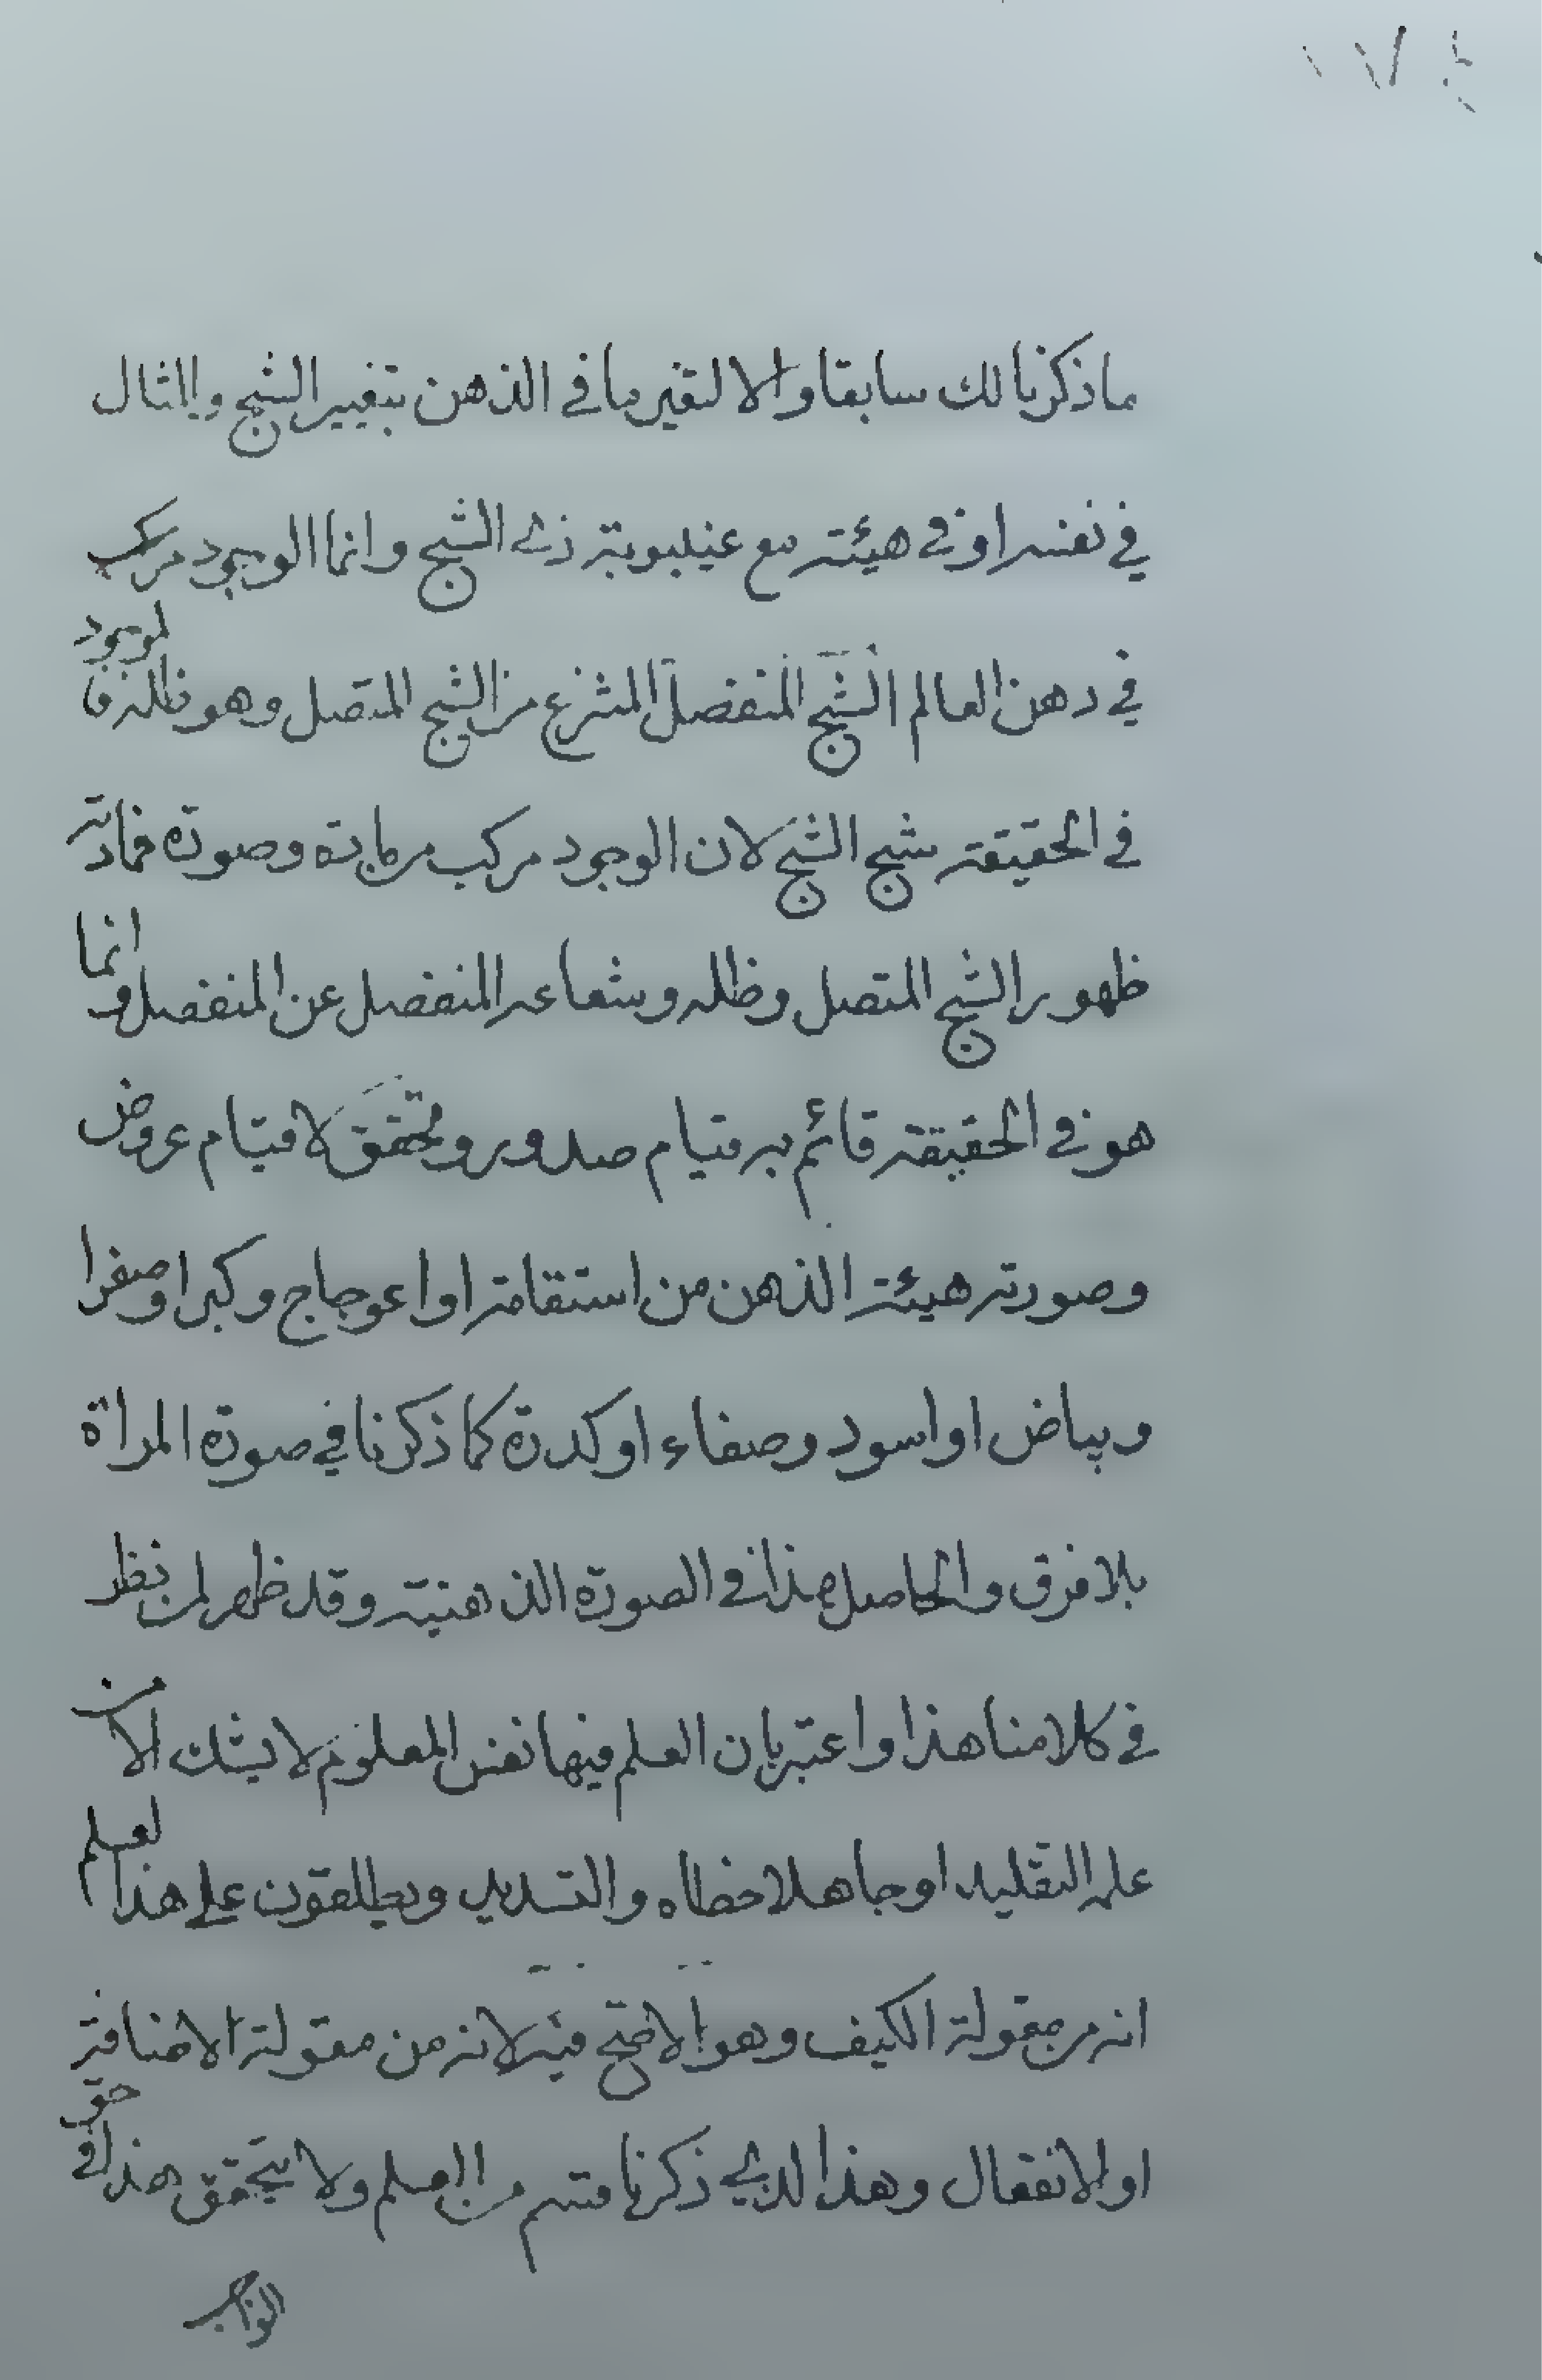 ما ذكرنا لك سابقا والا لتغير ما في الذهن بتغيير الشبح والمثال
في نفسه او في هيئته مع غيبوبته ذي الشبح وانما الوجود مركب
في ذهن العالم الشبح المنفصل المنتزع من الشبح المتصل وهو ظله فالموجود
في الحقيقة شبح الشبح لان الوجود مركب من مادة وصورة فمادته
ظهور الشبح المتصل وظله وشعاعه المنفصل عن المنفصل وانما
هو في الحقيقة قائم به قيام صدور وتحقق لا قيام عروض
وصورته هيئة الذهن من استقامة او اعوجاج وكبر او صغرا
وبياض او اسود وصفاء او كدرة كما ذكرنا في صورة المراة
بلا فرق والحاصل هذا في الصورة الذهنية وقد ظهر لمن نظر
في كلامنا هذا واعتبر بان العلم فيها نفس المعلوم لا يشك الا من
علم التقليد او جاهلا خطاه والتسديد ويطلقون على هذا العلم
انه من مقولة الكيف وهو الاصح فيه لانه من مقولة الاضافة
او الانفعال وهذا الذي ذكرنا قسم من العلم ولا يتحقق هذا في حق
الواجب